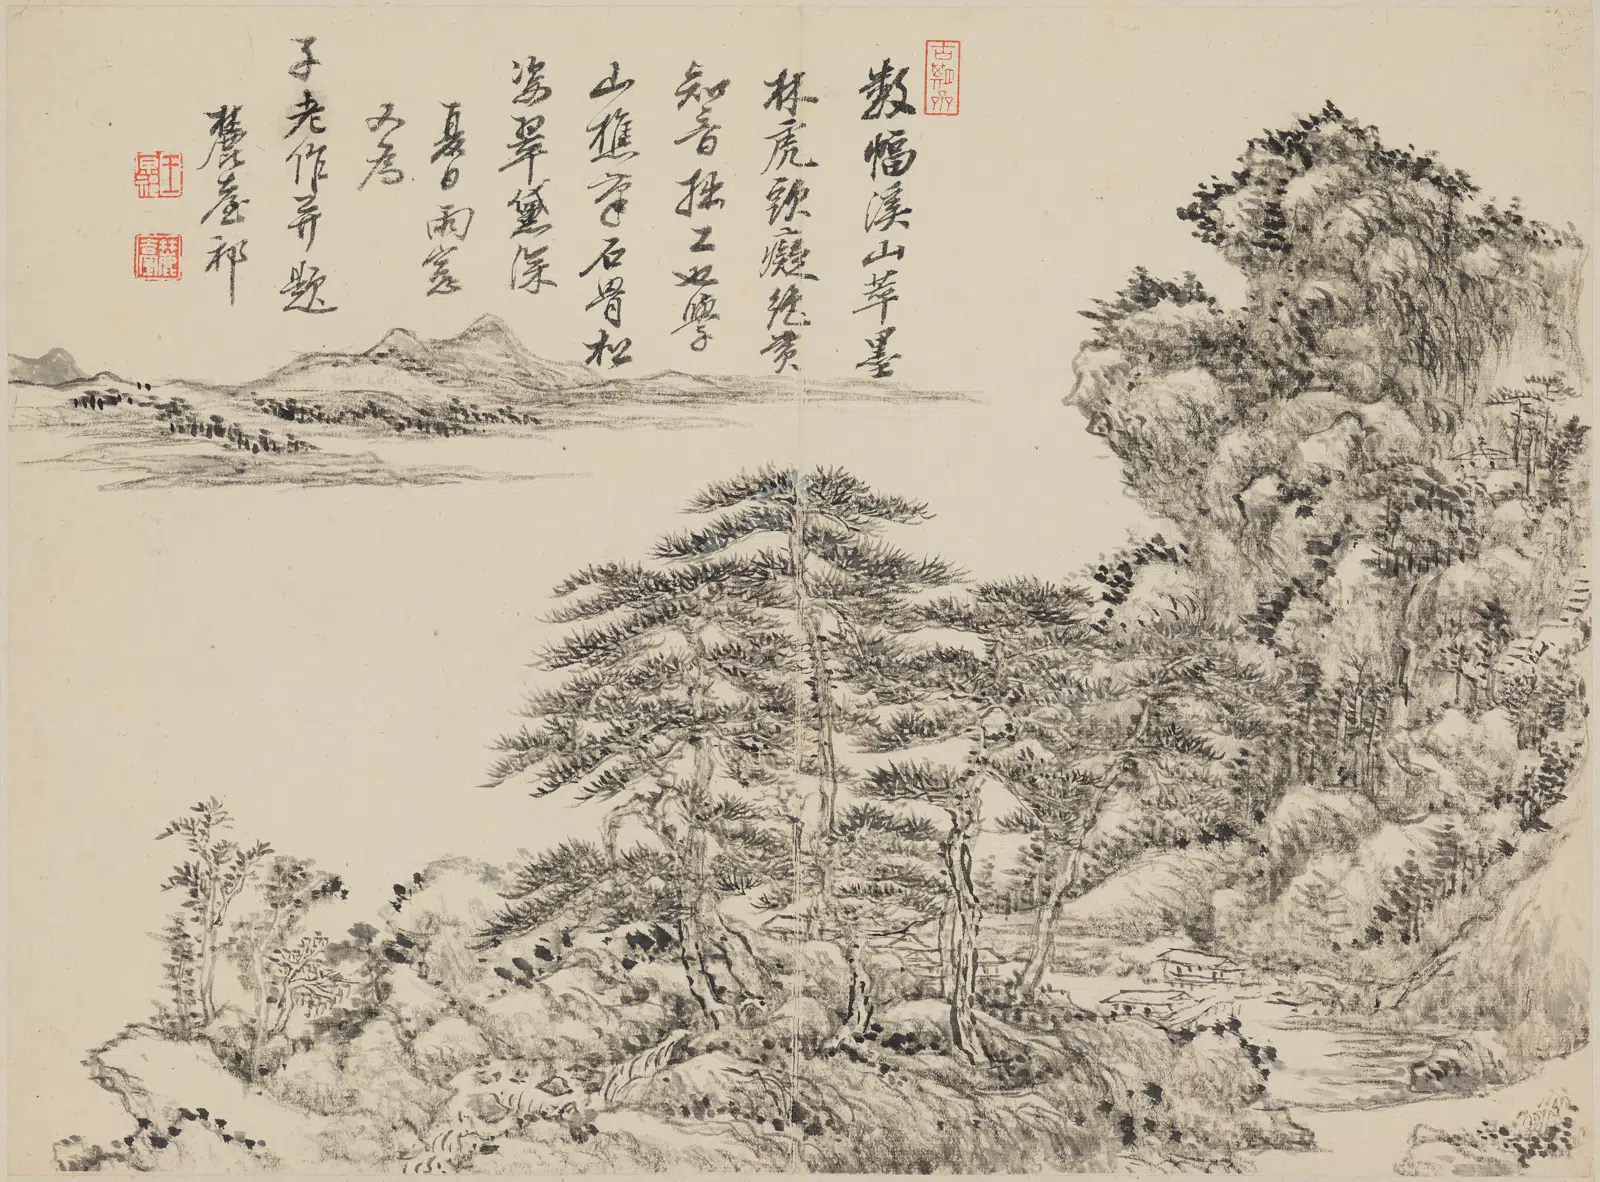 數幅溪山萃墨
林虎頭癡絕貴
知音拙工也學
山樵筆石骨松
姿翠黛深
夏日雨窓
又為
子老作并題
麓臺祁
王原祁
麓臺